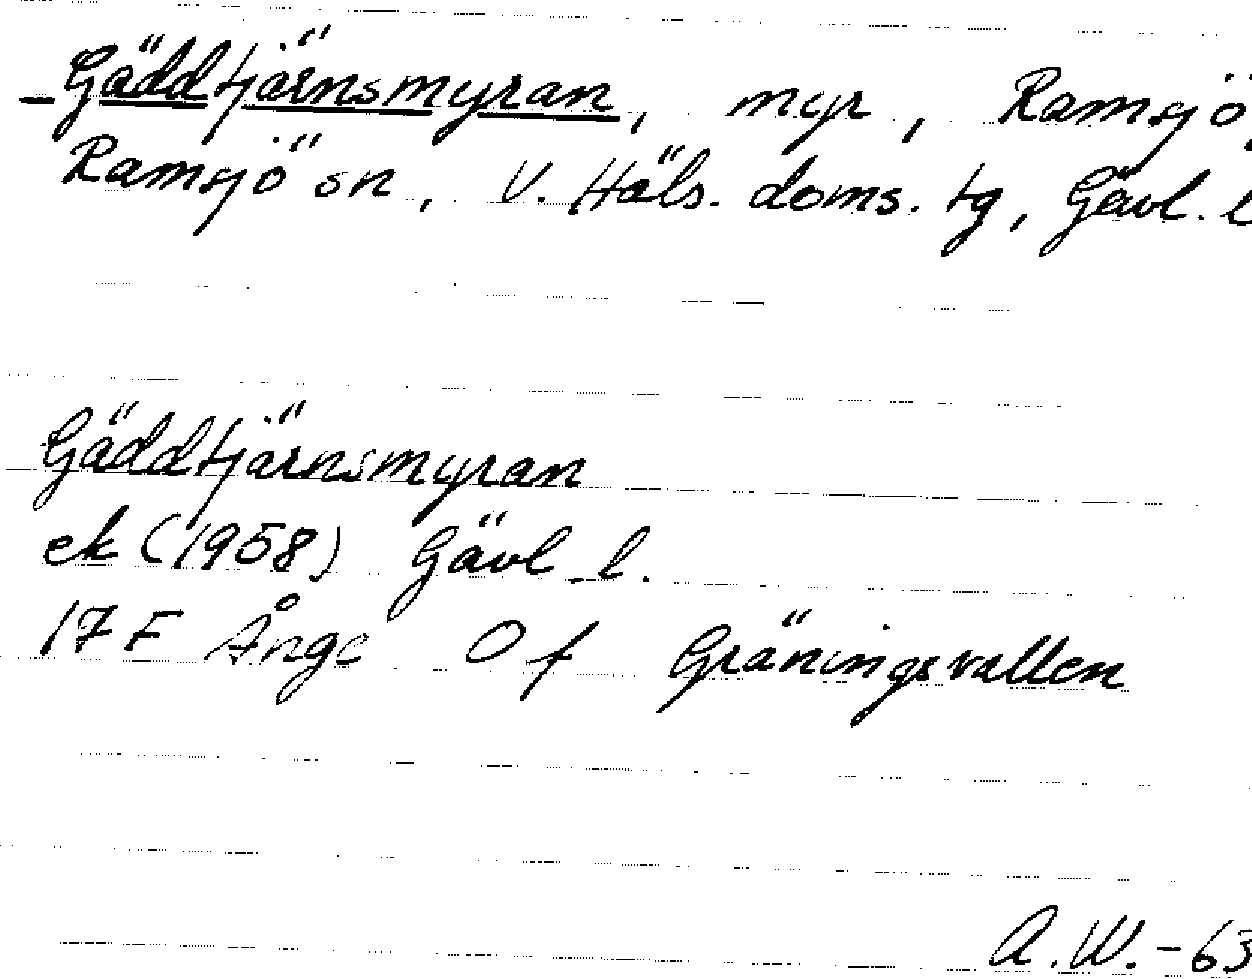 Gäddtjärnsmyran, myr, Ramsjö,
Ramsjö sn, V. Häls. doms. tg, Gävl. l
Gäddtjärnsmyran
ek (1958) Gävl. l.
17 F Ånge O f Gräningsvallen
A.W. -63